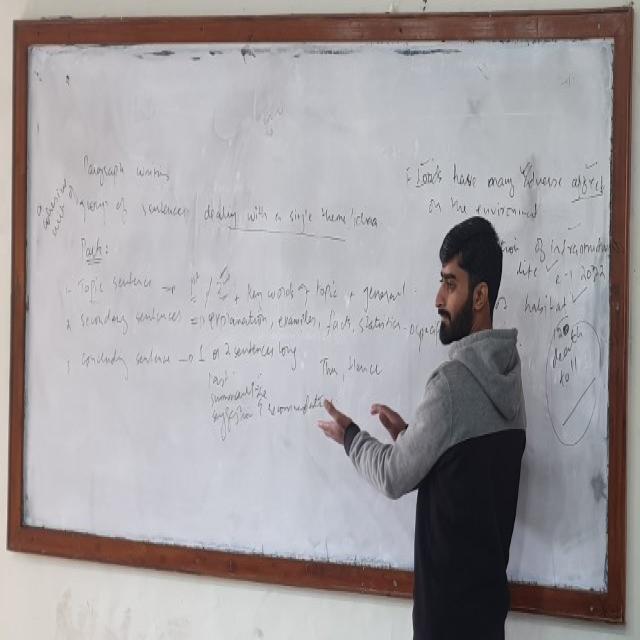 Paragraph writing
group of sentences dealing with a single theme/idea
Parts:
1- Topic sentence → + key words of topic + general
2 secondary sentences => explanation, examples, facts, statistics
3 concluding sentence → 1 or 2 sentences long
Thus, Hence
last
summarize
suggestion / 
Floods have many adverse effects
on the environment
of infrastructure
2022
habitat
no
death
toll